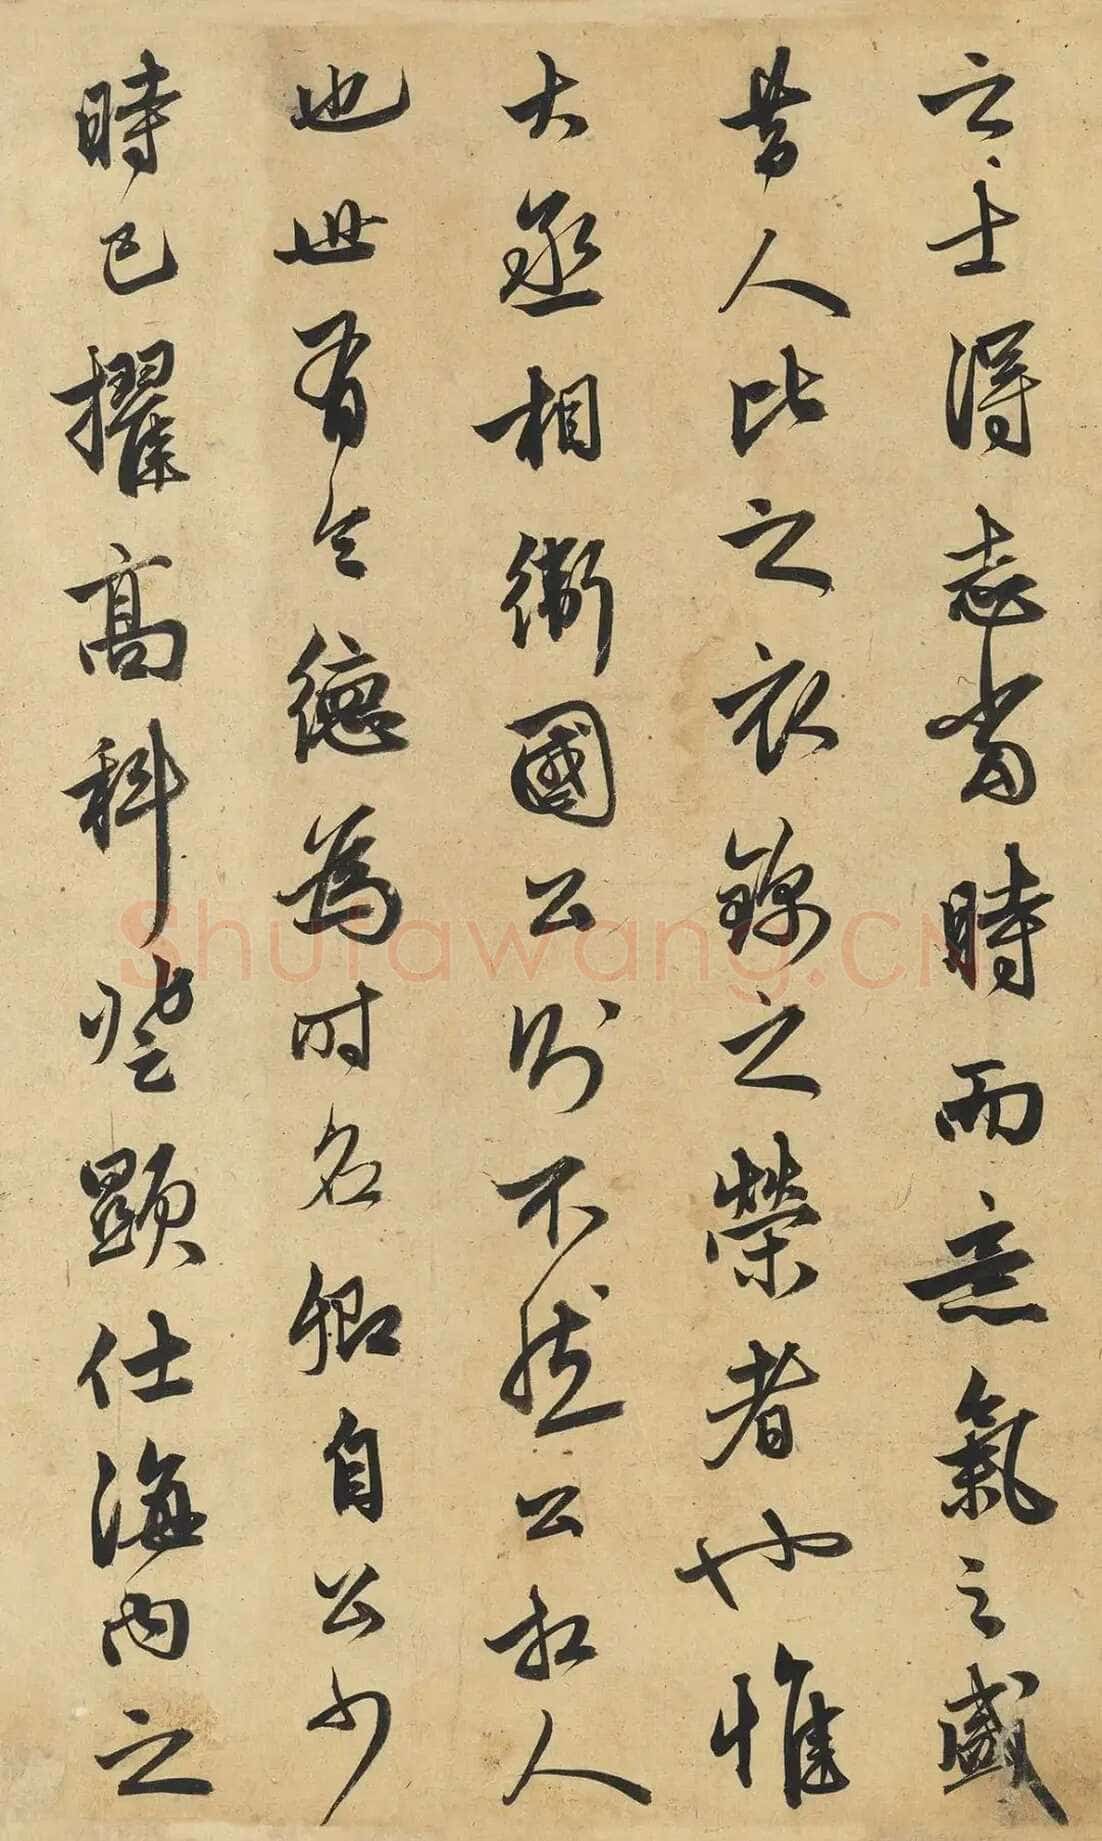 之士得志當時而意氣之盛
昔人比之衣錦之榮者也惟
大丞相衛國公則不然公相人
也世有令德為时名卿自公少
時已擢高科登顯仕海内之
Shufawang.CN